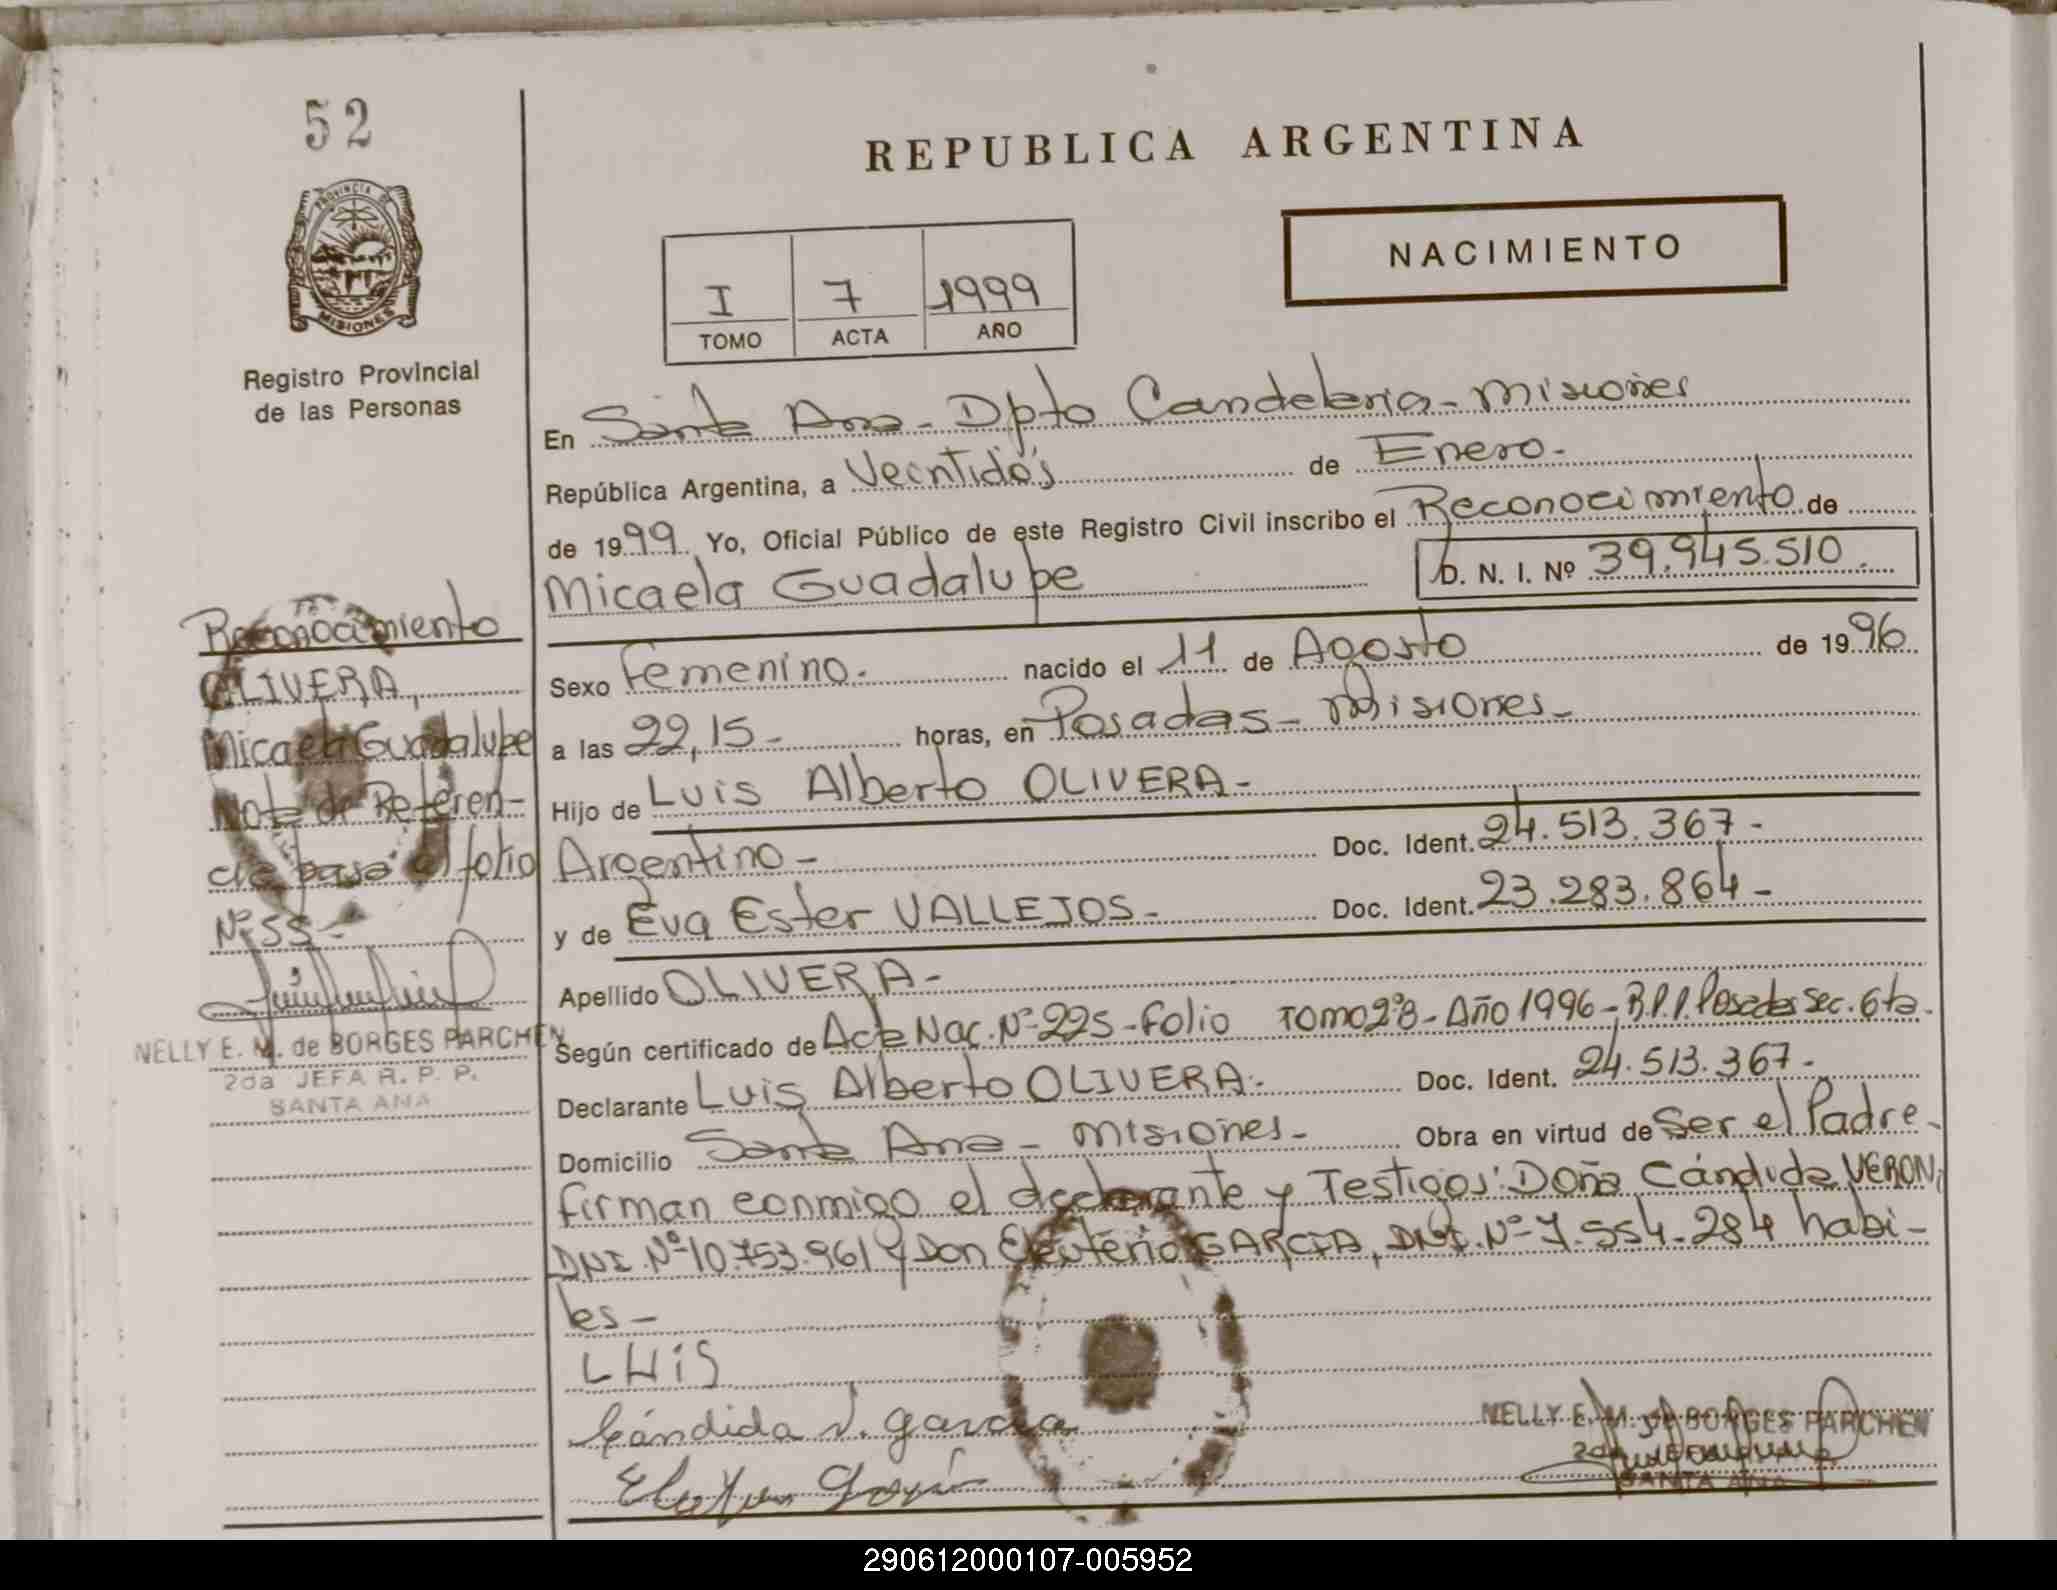 52
PROVINCIA DE
MISIONES
Registro Provincial
de las Personas
REPUBLICA ARGENTINA
NACIMIENTO
I 7 1999
TOMO ACTA AÑO
En Santa Ana - Dpto Candelaria - Misiones
República Argentina, a Veintidós de Enero.-
de 1999 Yo, Oficial Público de este Registro Civil inscribo el Reconocimiento de
Micaela Guadalupe D. N. I. Nº 39.945.510.
Sexo Femenino. nacido el 11 de Agosto de 1996
a las 22,15 - horas, en Posadas - Misiones -
Hijo de Luis Alberto OLIVERA -
Argentino - Doc. Ident. 24.513.367 -
y de Eva Ester VALLEJOS - Doc. Ident. 23.283.864 -
Apellido OLIVERA -
Según certificado de Acta Nac. Nº 225 - Folio Tomo 2ºB - Año 1996 - R.P.P. Posadas Sec. 6ta.
Declarante Luis Alberto OLIVERA - Doc. Ident. 24.513.367 -
Domicilio Santa Ana - Misiones - Obra en virtud de Ser el Padre -
firman conmigo el declarante y Testigos: Doña Cándida VERON,
DNI. Nº 10.753.961 y Don Eleuterio GARCIA, DNI. Nº 7.554.284 habi-
les -
LUiS
Cándida V. Garcia
NELLY E. M. de BORGES PARCHEN
SANTA ANA
Reconocimiento
OLIVERA,
Micaela Guadalupe
Nota de Referen-
cia pasa al folio
Nº 55 -
NELLY E. M. de BORGES PARCHEN
2da JEFA R. P. P.
SANTA ANA
290612000107-005952